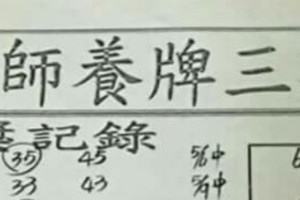 師養牌三
記錄
35 45 5/6中
33 43 5/9中